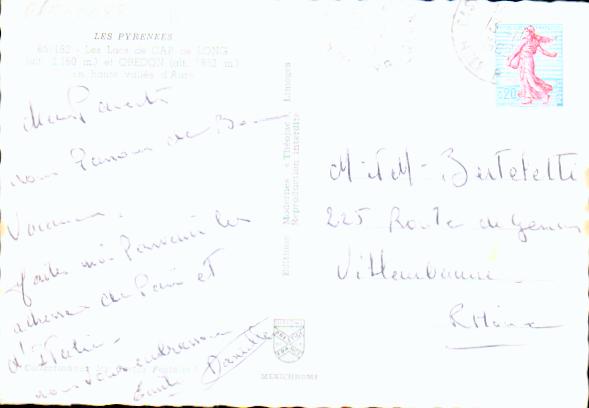 LES PYRENEES
65-152 - Les Lacs de CAP de LONG
(alt. 2.160 m.) et OREDON (alt. 1852 m.)
en haute vallée d'Aure
Mes Parents
nous Passons de Bonne
Vacances.
faites moi Parvenir les
adresses de Paris et
d'Italie.
nous vous embrassons
Danielle
Editions Modernes « Théojac » Limoges
Reproduction interdite
MEXICHROME
0,20
M et M - Bertoletti
225 Route de Genas
Villeurbanne
Rhône